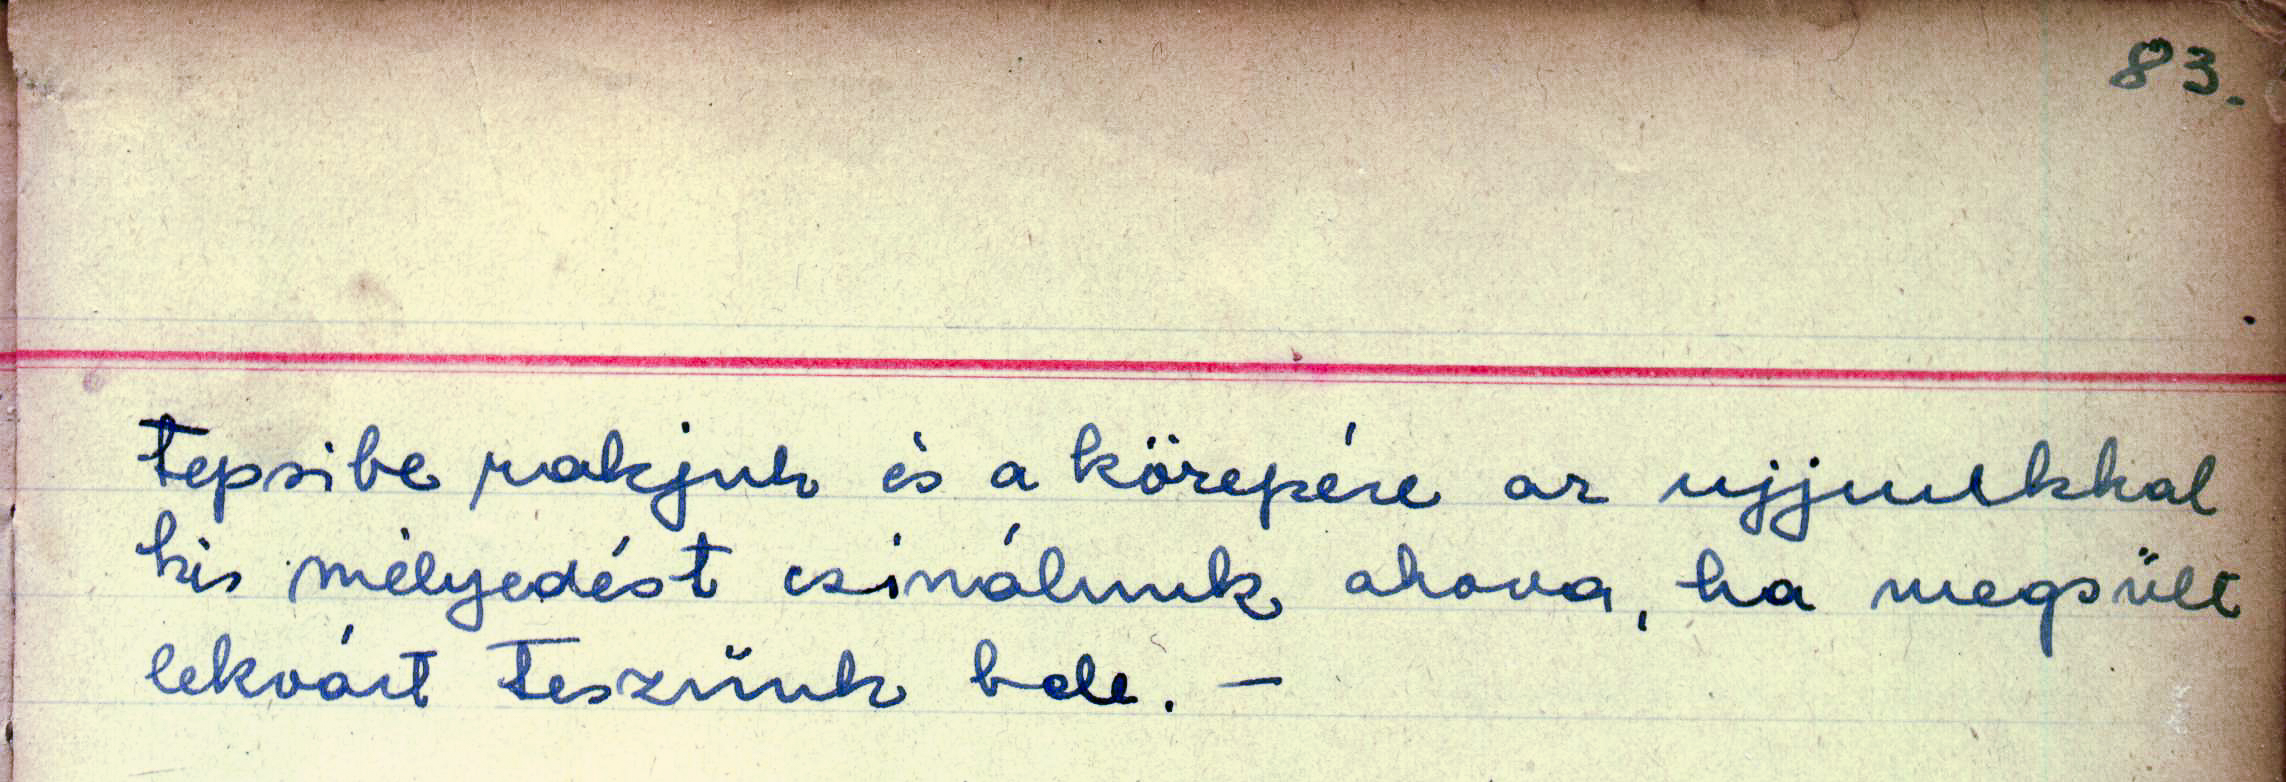 83.
tepsibe rakjuk és a közepére az ujjunkkal
kis mélyedést csinálunk ahova, ha megsült
lekvárt teszünk bele. —